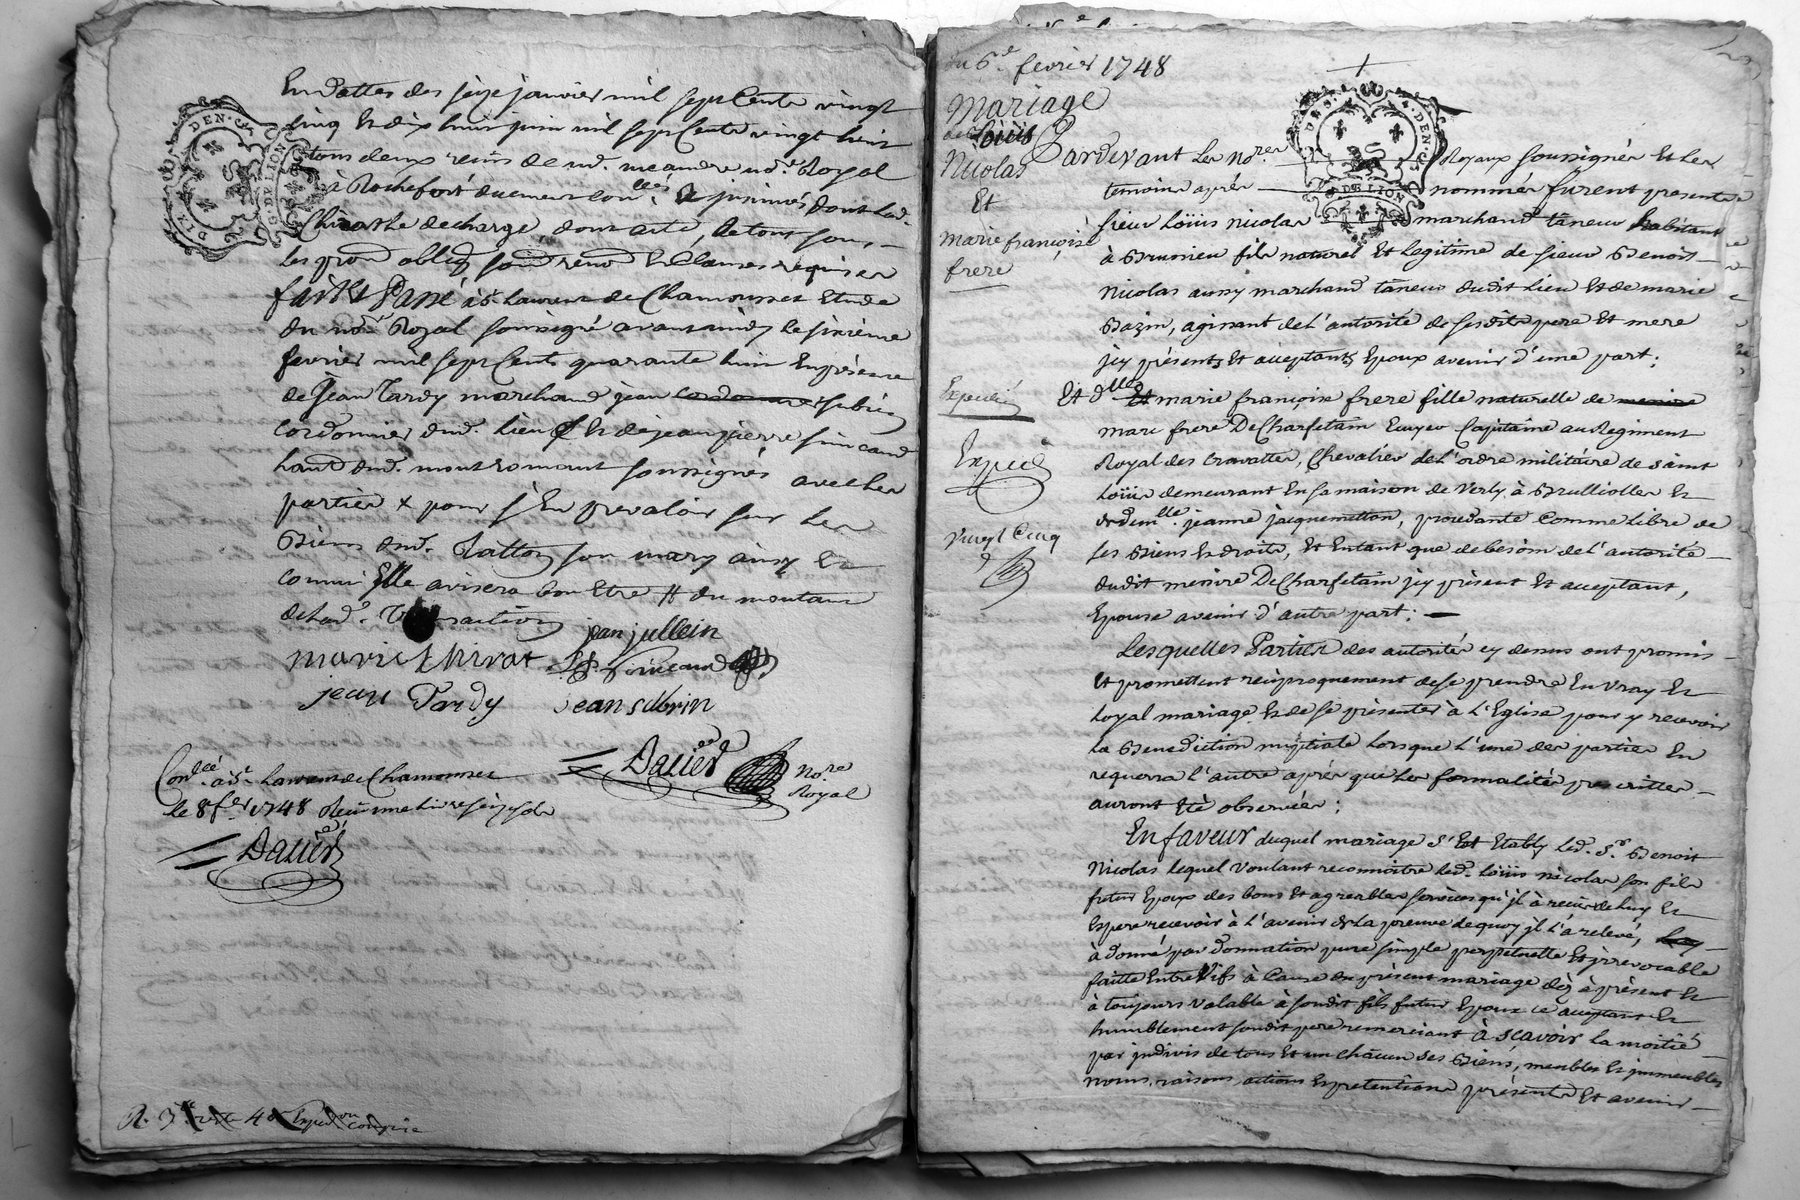 En dattes des seize janvier mil sept Cents vingt
cinq Et dix huit juin mil sept Cents vingt huit
tous deux reçus de md. nre. Royal
à Rochefort
de charge dont acte, le tout sous
les prom oblig soum renon Et Clauses requises
fait Et Passé à St. Laurent de Chamousset Etude
du nore. Royal soussigné avant midy le sixieme
fevrier mil sept Cent quarante huit En présence
de Jean Tardy marchand jean subrin
cordonnier dud. lieu Et de jean pierre simeand
soussignés avec les
parties & pour s'En prevaloir sur les
Biens dud. son mary ainsy Et
comme Elle avisera bon Etre # du montant
de lad. Transaction
jean jullein
marie thivat
simeand
jean Tardy
jean subrin
Davier
Nore.
Royal
Conllé à St. Laurent de Chamousset
le 8 fer. 1748 Reçu
Davier
DEN.
G. DE LION
DIX
du 6e fevrier 1748
Mariage
de Loüis
Nicolas
Et
Marie françoise
frere
Expedié
Expedié
vingt Cinq
DEN.
G. DE LION
Pardevant les Nores. Royaux soussignés Et les
temoins après nommés furent presents
sieur Loüis Nicolas marchand taneur habitant
à Brussieu fils naturel Et Legitime de sieur Benoit
Nicolas aussy marchand taneur dudit Lieu Et de marie
Bazin, agissant de L'autorité de sesdits pere Et mere
jcy présents Et acceptants Epoux avenir d'une part;
Et dlle marie françoise frere fille naturelle de
marc frere DeCharfetain Ecuyer Capitaine au Regiment
Royal des Cravattes, Chevalier de L'ordre militaire de saint
Loüis demeurant En sa maison de Verly à Brulliolles Et
de demlle. jeanne jacquemetton, procedante Comme Libre de
ses Biens Et droits, Et Entant que de besoin de L'autorité
dudit messire DeCharfetain jcy présent Et acceptant,
Epouse avenir d'autre part;
Lesquelles Parties des autorités cy dessus ont promis
Et promettent réciproquement de se prendre En vray Et
Loyal mariage Et de se présenter à L'Eglise pour y recevoir
La Benediction nuptiale Lorsque L'une des parties En
requerra L'autre après que les formalités prescrittes
auront Eté observées;
En faveur duquel mariage s'Est Etably Led. Sr. Benoit
Nicolas lequel voulant reconnoitre Led. Loüis nicolas son fils
futur Epoux des bons Et agreables services qu'jl à reçus de Luy Et
Espere recevoir à L'avenir de La preuve de quoy jl L'a relevé,
à donné par donnation pure simple perpetuelle Et jrrevocable
faitte Entre Vifs à Cause du présent mariage dès à présent Et
à toujours valable à soudit fils futur Epoux ce acceptant Et
humblement soudit pere remerciant à sçavoir la moitié
par jndivis de tous Et un châcun ses Biens, meubles Et jmmeubles
noms, raisons, actions Et pretentions présents Et avenir